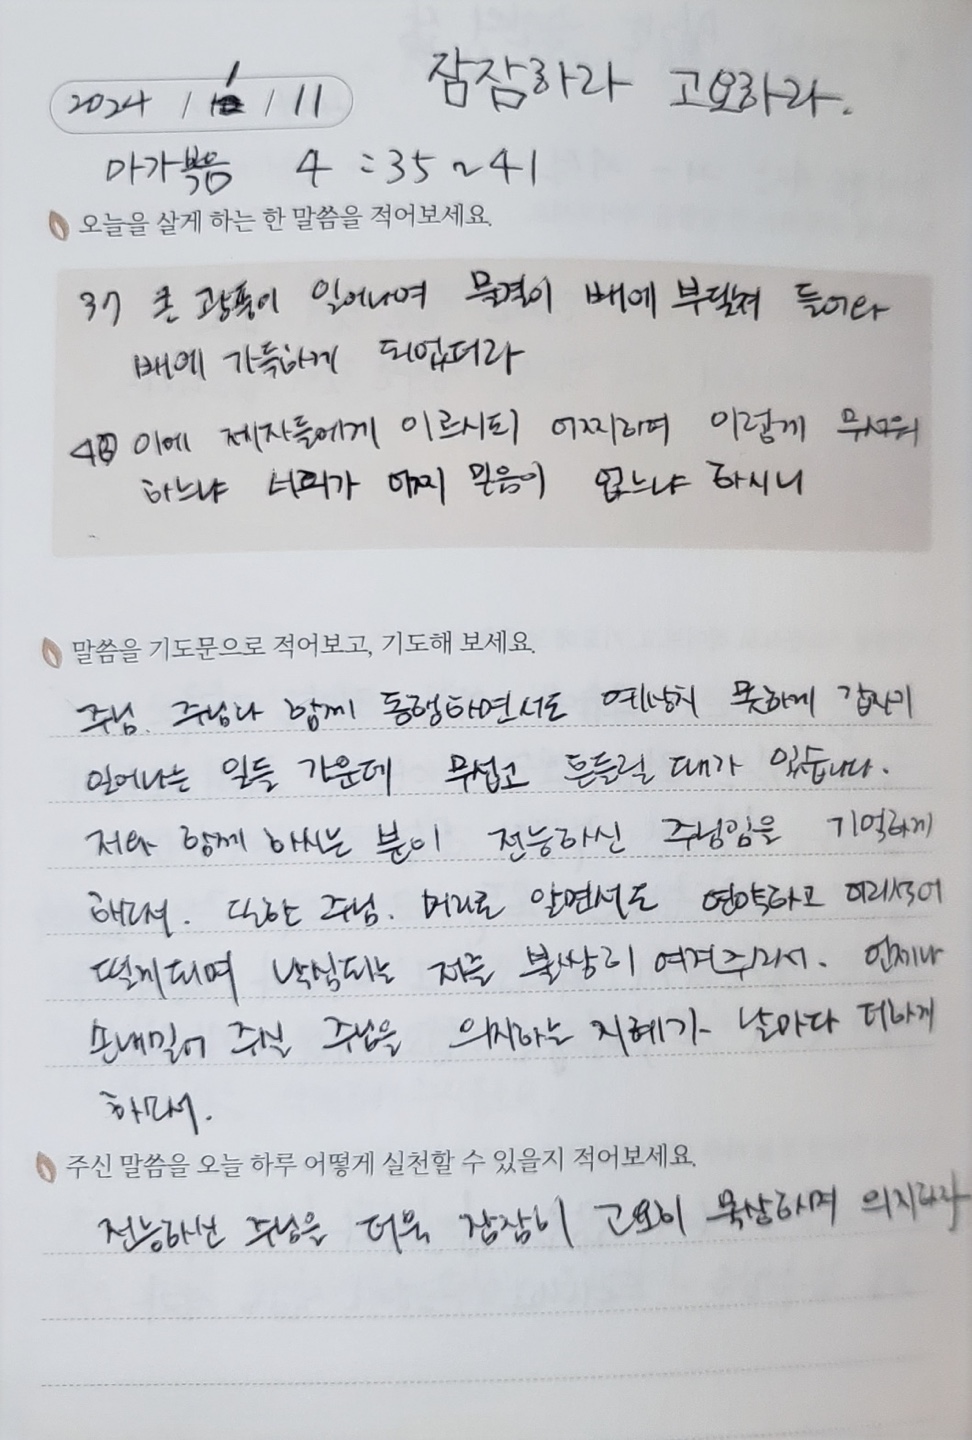 잠잠하라 고요하라.
2024 / 1 / 11
마가복음 4 : 35 ~ 41
오늘을 살게 하는 한 말씀을 적어보세요.
37 큰 광풍이 일어나며 물결이 배에 부딪쳐 들어와
배에 가득하게 되었더라
40 이에 제자들에게 이르시되 어찌하여 이렇게 무서워
하느냐 너희가 어찌 믿음이 없느냐 하시니
말씀을 기도문으로 적어보고, 기도해 보세요.
주님. 주님과 함께 동행하면서도 예상치 못하게 갑자기
일어나는 일들 가운데 무섭고 흔들릴 때가 있습니다.
저와 함께 하시는 분이 전능하신 주님임을 기억하게
하소서. 또한 주님. 머리로 알면서도 연약하고 어리석어
떨게되며 낙심되는 저를 불쌍히 여겨주소서. 언제나
손내밀어 주실 주님을 의지하는 지혜가 날마다 더하게
하소서.
주신 말씀을 오늘 하루 어떻게 실천할 수 있을지 적어보세요.
전능하신 주님을 더욱 잠잠히 고요히 묵상하며 의지하자